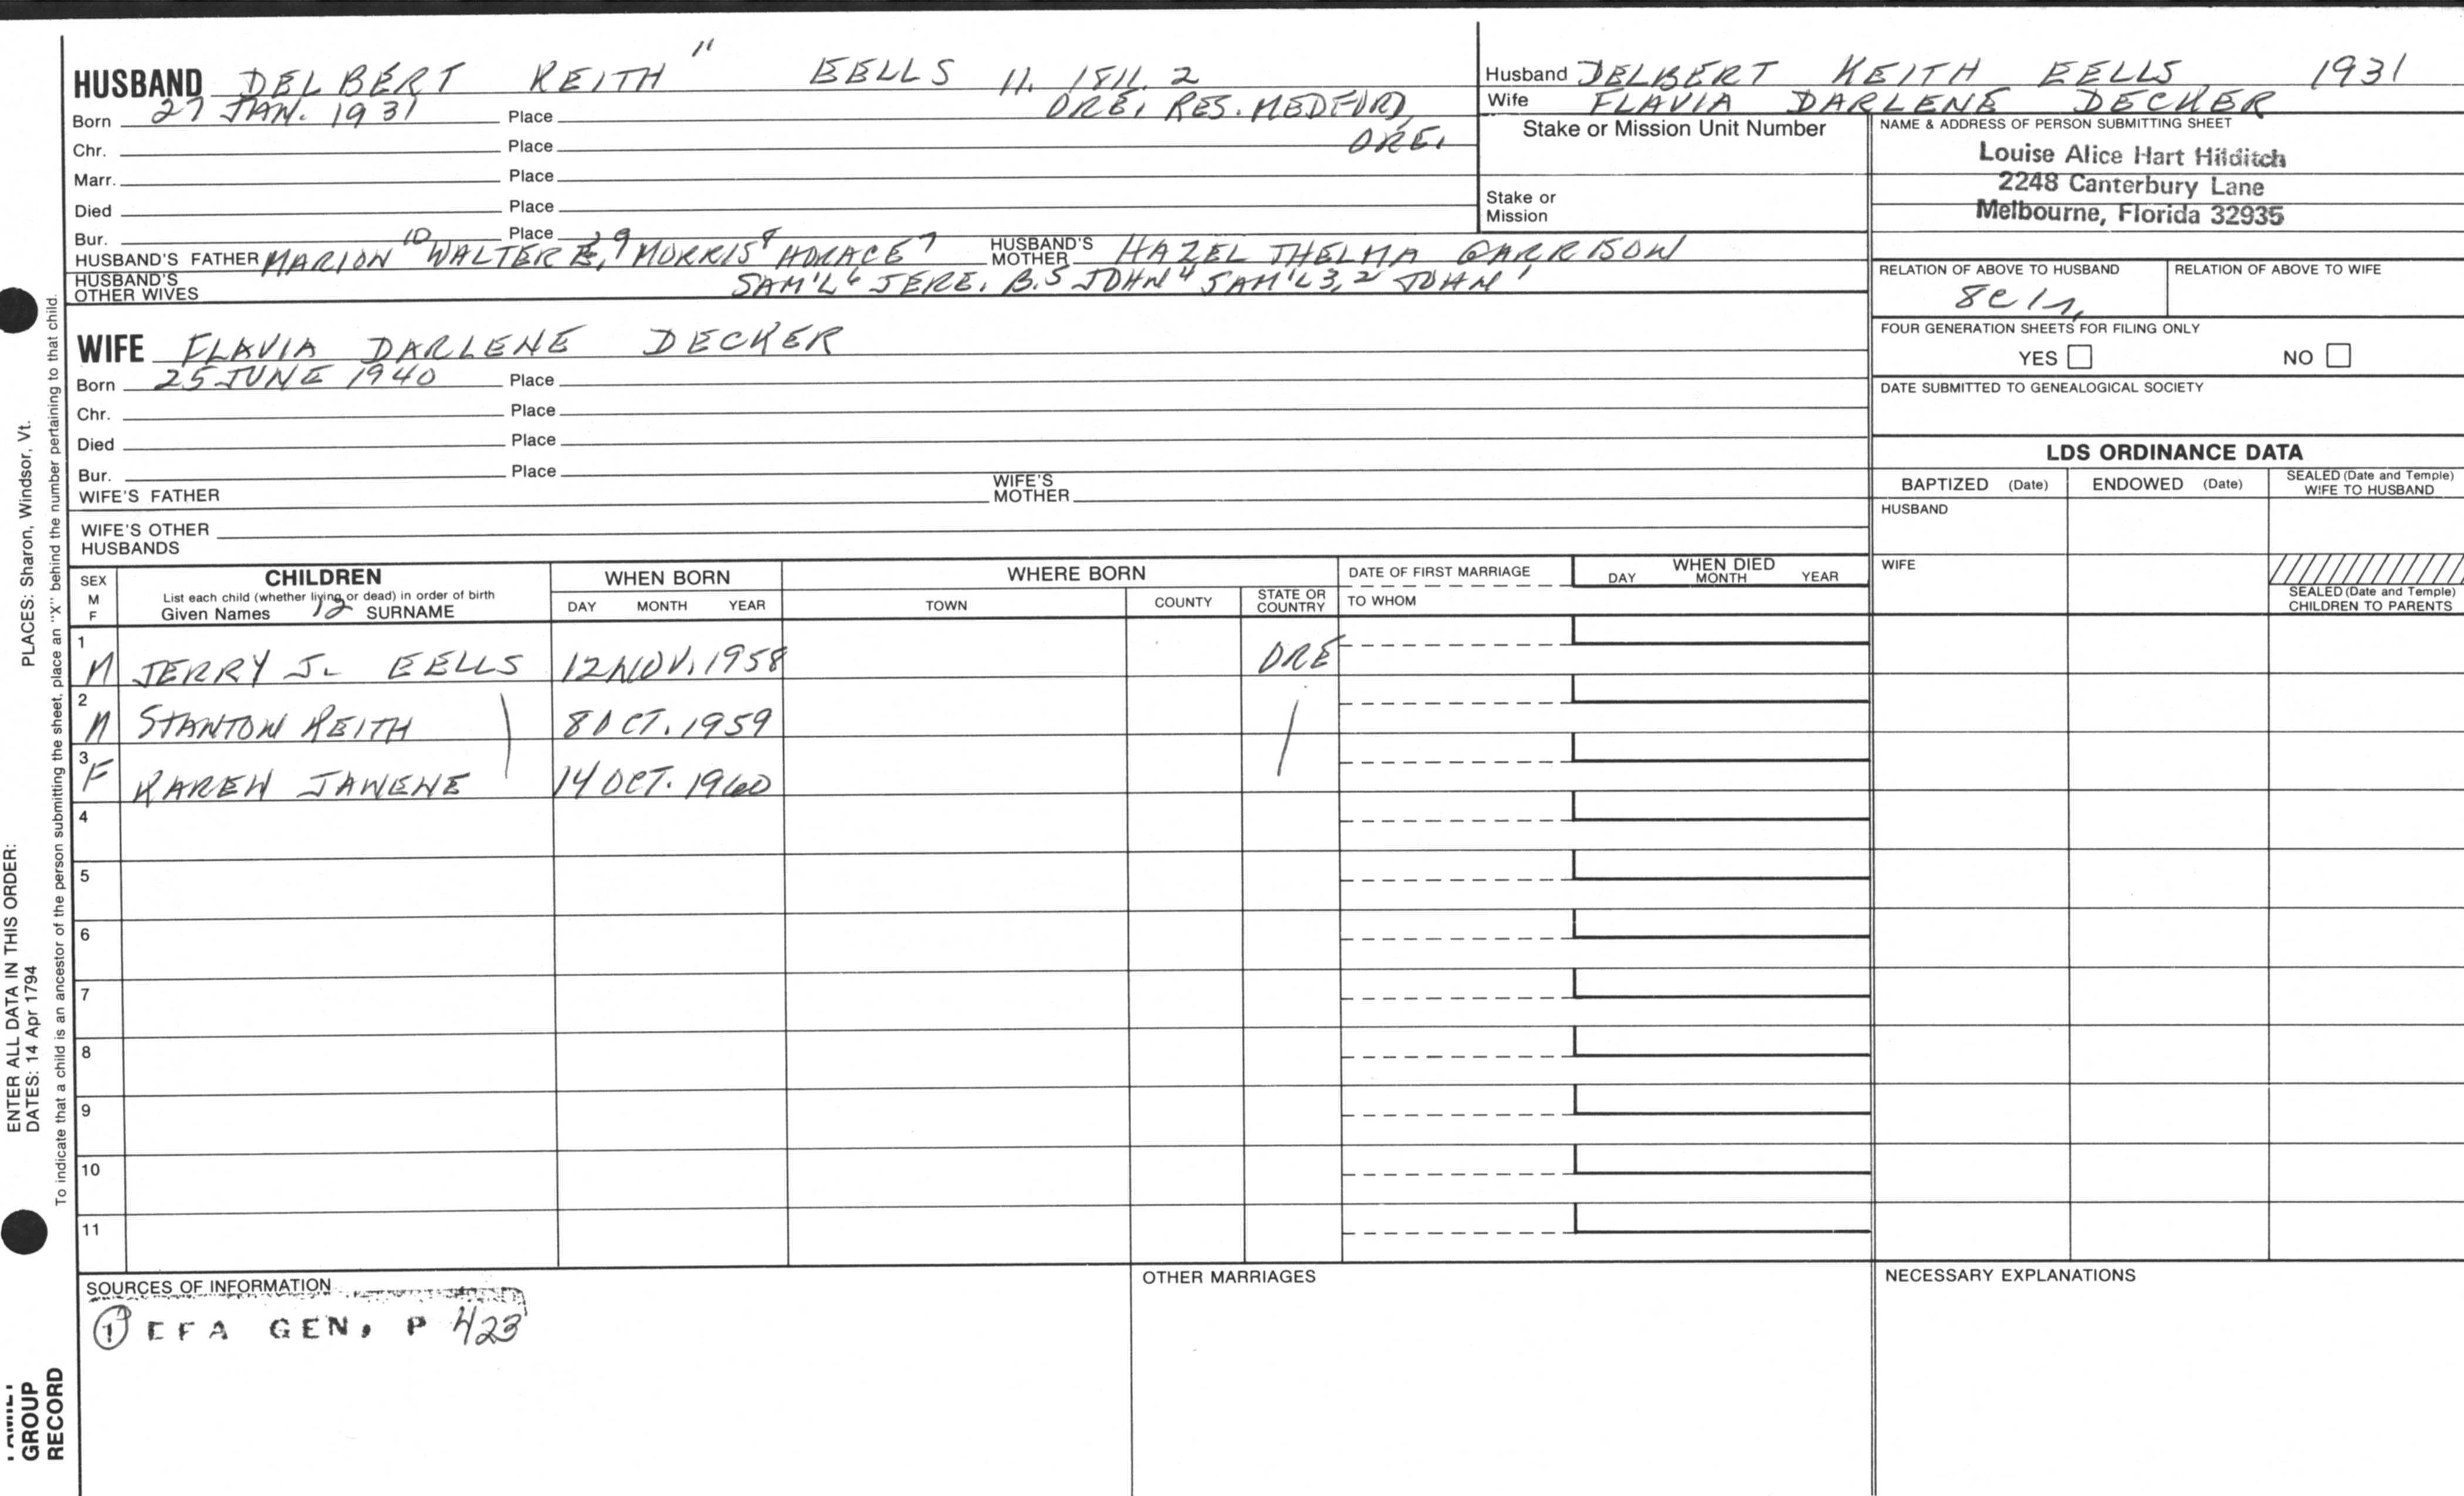 HUSBAND DELBERT KEITH 11 EELLS 11. 1811. 2
Born 27 JAN. 1931 Place ORE, RES. MEDFORD, ORE.
Chr. Place
Marr. Place
Died Place
Bur. Place
HUSBAND'S FATHER MARION 10 WALTER E, 9 MORRIS 8 HORACE 7 HUSBAND'S MOTHER HAZEL THELMA GARRISON
HUSBAND'S OTHER WIVES SAM'L 6 JERE. B.5 JOHN 4 SAM'L 3, 2 JOHN 1
Husband DELBERT KEITH EELLS 1931
Wife FLAVIA DARLENE DECKER
Stake or Mission Unit Number
Stake or Mission
NAME & ADDRESS OF PERSON SUBMITTING SHEET
Louise Alice Hart Hilditch
2248 Canterbury Lane
Melbourne, Florida 32935
RELATION OF ABOVE TO HUSBAND RELATION OF ABOVE TO WIFE
FOUR GENERATION SHEETS FOR FILING ONLY
YES NO
DATE SUBMITTED TO GENEALOGICAL SOCIETY
WIFE FLAVIA DARLENE DECKER
Born 25 JUNE 1940 Place
Chr. Place
Died Place
Bur. Place
WIFE'S FATHER WIFE'S MOTHER
WIFE'S OTHER HUSBANDS
LDS ORDINANCE DATA
BAPTIZED (Date) ENDOWED (Date) SEALED (Date and Temple) WIFE TO HUSBAND
HUSBAND
WIFE
SEALED (Date and Temple) CHILDREN TO PARENTS
SEX M F
CHILDREN
List each child (whether living or dead) in order of birth
Given Names 12 SURNAME
WHEN BORN
DAY MONTH YEAR
WHERE BORN
TOWN COUNTY STATE OR COUNTRY
DATE OF FIRST MARRIAGE
TO WHOM
WHEN DIED
DAY MONTH YEAR
1 M JERRY J. EELLS 12 NOV. 1958 ORE
2 M STANTON KEITH 8 OCT. 1959
3 F KAREN JANENE 14 OCT. 1960
4
5
6
7
8
9
10
11
SOURCES OF INFORMATION
1 EFA GEN, P 423
OTHER MARRIAGES
NECESSARY EXPLANATIONS
PLACES: Sharon, Windsor, Vt.
To indicate that a child is an ancestor of the person submitting the sheet, place an "X" behind the number pertaining to that child.
ENTER ALL DATA IN THIS ORDER:
DATES: 14 Apr 1794
GROUP
RECORD